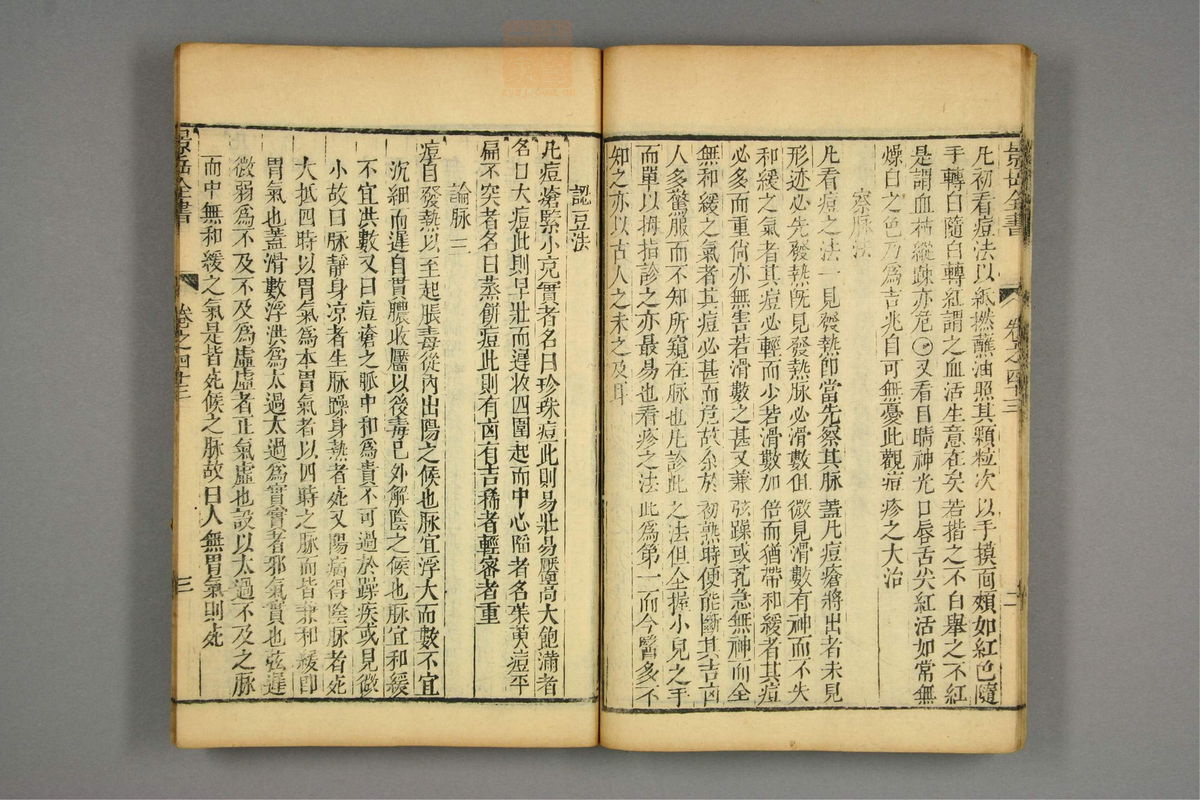 景岳全書
卷之四十三
二
凡初看痘法以紙撚蘸油照其顆粒次以手摸面頰如紅色隨
手轉白隨白轉紅謂之血活生意在矣若揩之不白舉之不紅
是謂血枯縱疎亦危〇又看目睛神光口唇舌尖紅活如常無
燥白之色乃為吉兆自可無憂此觀痘疹之大治
察脉法
凡看痘之法一見發熱卽當先察其脉蓋凡痘瘡將出者未見
形迹必先發熱旣見發熱脉必滑數但微見滑數有神而不失
和緩之氣者其痘必輕而少若滑數加倍而猶帶和緩者其痘
必多而重尚亦無害若滑數之甚又兼弦躁或芤急無神而全
無和緩之氣者其痘必甚而危故余於初熱時便能斷其吉凶
人多驚服而不知所窺在脉也凡診此之法但全握小兒之手
而單以拇指診之亦最易也看疹之法此為第一而今醫多不
知之亦以古人之未之及耳
認豆法
凡痘瘡緊小充實者名曰珍珠痘此則易壯易靨高大飽滿者
名曰大痘此則早壯而遲收四圍起而中心陷者名茱萸痘平
扁不突者名曰蒸餅痘此則有凶有吉稀者輕密者重
論脉 三
痘自發熱以至起脹毒從內出陽之候也脉宜浮大而數不宜
沉細而遲自貫膿收靨以後毒已外解陰之候也脉宜和緩
不宜洪數又曰痘瘡之脉中和為貴不可過於躁疾或見微
小故曰脉靜身凉者生脉躁身熱者死又陽病得陰脉者死
大抵四時以胃氣為本胃氣者以四時之脉而皆兼和緩卽
胃氣也蓋滑數浮洪為太過太過為實實者邪氣實也弦遲
微弱為不及不及為虛虛者正氣虛也設以太過不及之脉
而中無和緩之氣是皆死候之脉故曰人無胃氣則死
景岳全書
卷之四十三
三